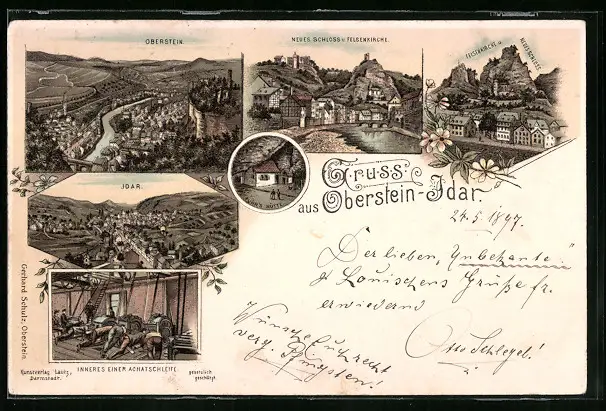 OBERSTEIN.
NEUES SCHLOSS U. FELSENKIRCHE.
FELSENKIRCHE U.
NEUESCHLOSS
HÜTTE
IDAR.
Gruss
aus Oberstein-Idar.
24.5.1897.
Der lieben, Unbekante
& Louischens Grüße fr.
erwiedernd
Otto Schlegel!
Wünsche
verg. Pfingsten!
Gerhard Schulz, Oberstein.
INNERES EINER ACHATSCHLEIFE.
Kunstverlag Lautz,
Darmstadt.
gesetzlich
geschützt.